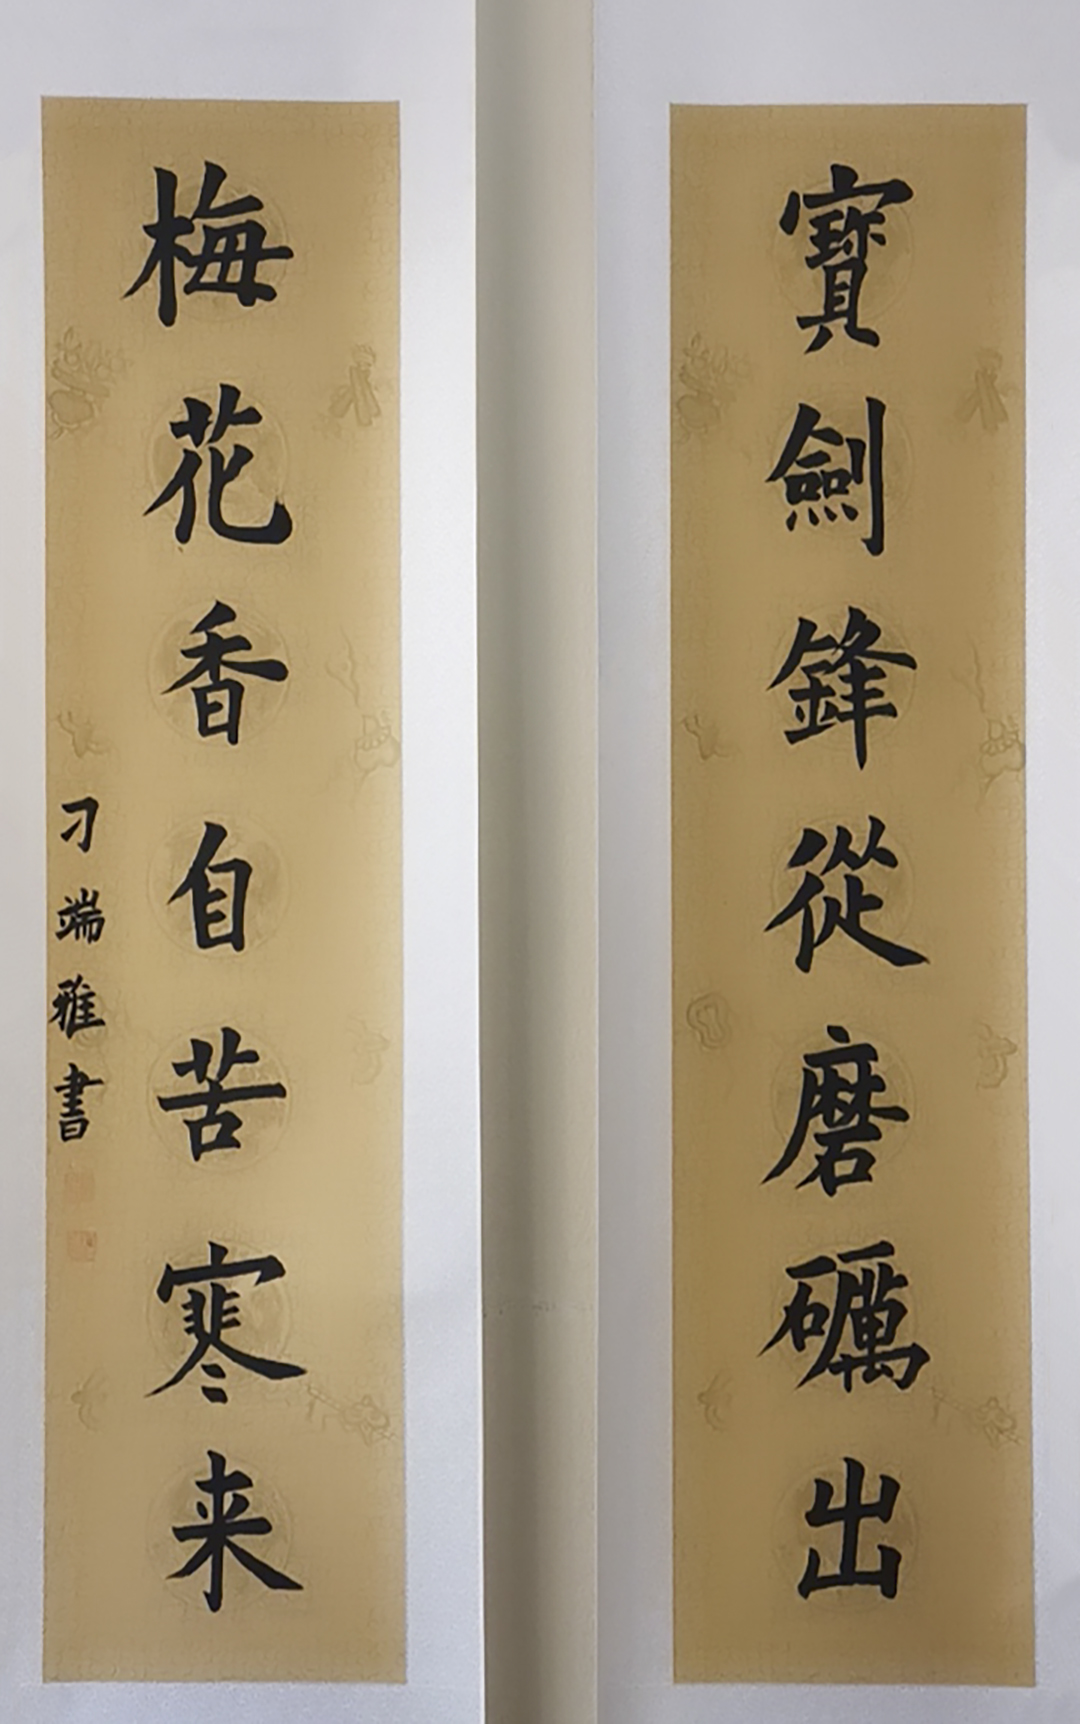 寶劍鋒從磨礪出
梅花香自苦寒来
刁端雅書